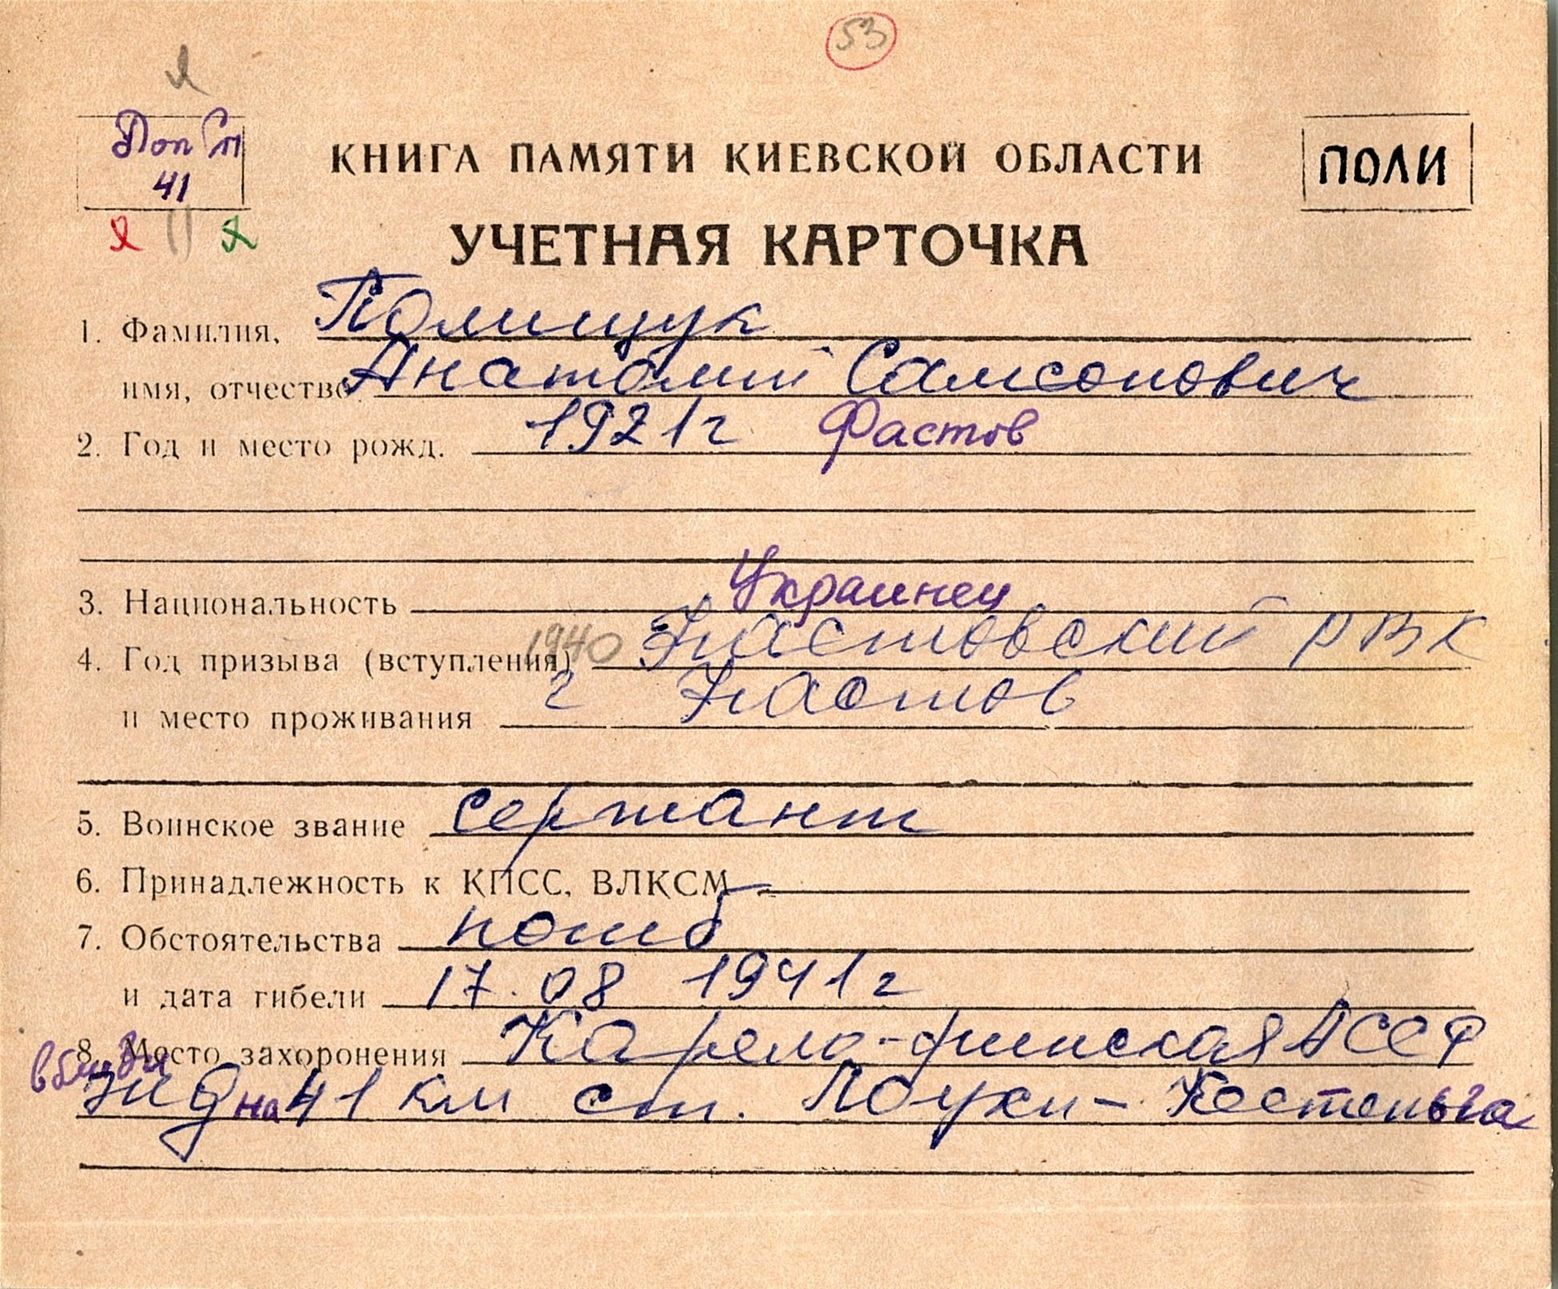 53
Доп
41
КНИГА ПАМЯТИ КИЕВСКОЙ ОБЛАСТИ
ПОЛИ
УЧЕТНАЯ КАРТОЧКА
1. Фамилия, Полищук
имя, отчество Анатолий Самсонович
2. Год и место рожд. 1921г Фастов
3. Национальность Украинец
4. Год призыва (вступления) 1940 Фастовский РВК
и место проживания г Фастов
5. Воинское звание сержант
6. Принадлежность к КПСС, ВЛКСМ –
7. Обстоятельства погиб
и дата гибели 17.08 1941г
8. Место захоронения Карело-финская АССР
вблизи жд на 41 км ст. Лоухи – Кестеньга